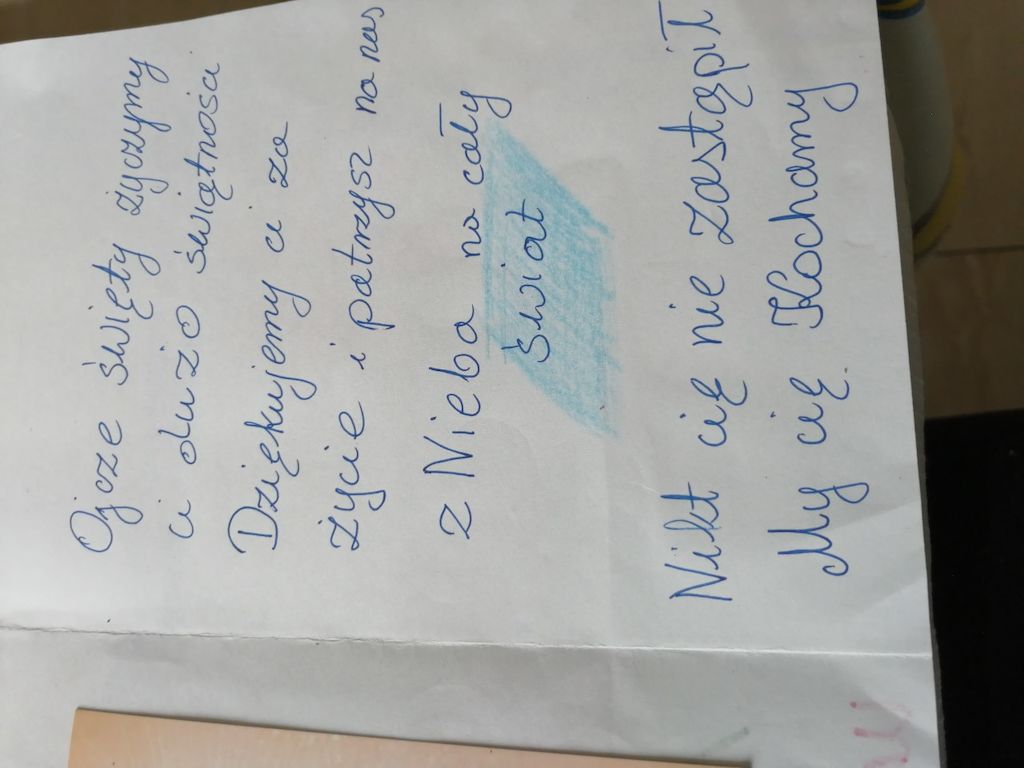 Ojcze święty życzymy
ci dużo świątności
Dziękujemy ci za
życie i patrzysz na nas
z Nieba na cały
świat
Nikt cię nie zastąpił
My cię Kochamy